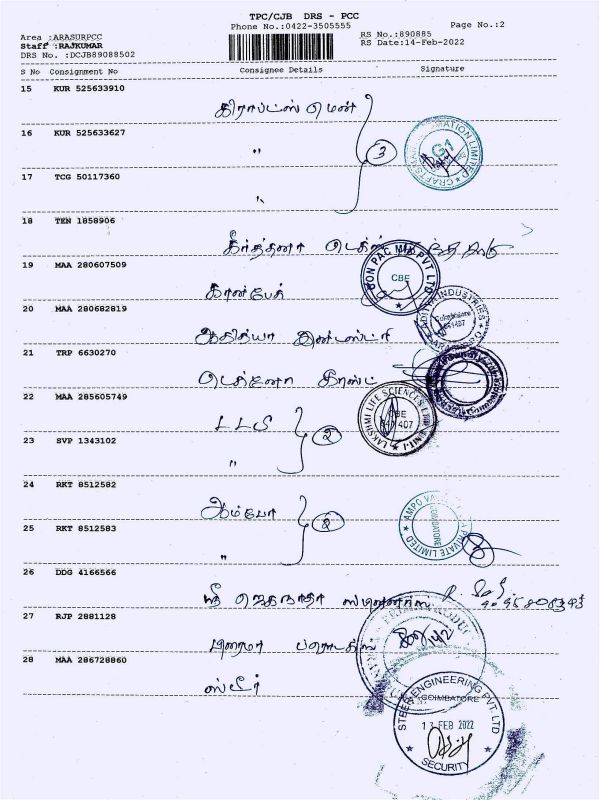 TPC/CJB DRS - PCC
Phone No.:0422-3505555
Page No.:2
Area :ARASURPCC
RS No.:890885
Staff :RAJKUMAR
RS Date:14-Feb-2022
DRS No. :DCJB89088502
S No Consignment No Consignee Details Signature
15 KUR 525633910
கிராப்ட்ஸ் மென்
16 KUR 525633627
" 3
17 TCG 50117360
"
18 TEN 1858906
கீர்த்தனா
19 MAA 280607509
கான்பேக்
CON PAC PVT LTD
CBE
20 MAA 280682819
ஆதித்யா இண்டஸ்ட்ரி
21 TRP 6630270
டெக்னோ
22 MAA 285605749
LAKSHMI LIFE SCIENCES
CBE
641 407
23 SVP 1343102
" 2
24 RKT 8512582
ஆம்போ
AMPO PRIVATE LIMITED
COIMBATORE
25 RKT 8512583
" 2
26 DDG 4166566
ஸ்ரீ ஜெகநாதா
27 RJP 2881128
28 MAA 286728860
ஸ்டீர்
STEER ENGINEERING PVT. LTD
COIMBATORE
13 FEB 2022
SECURITY